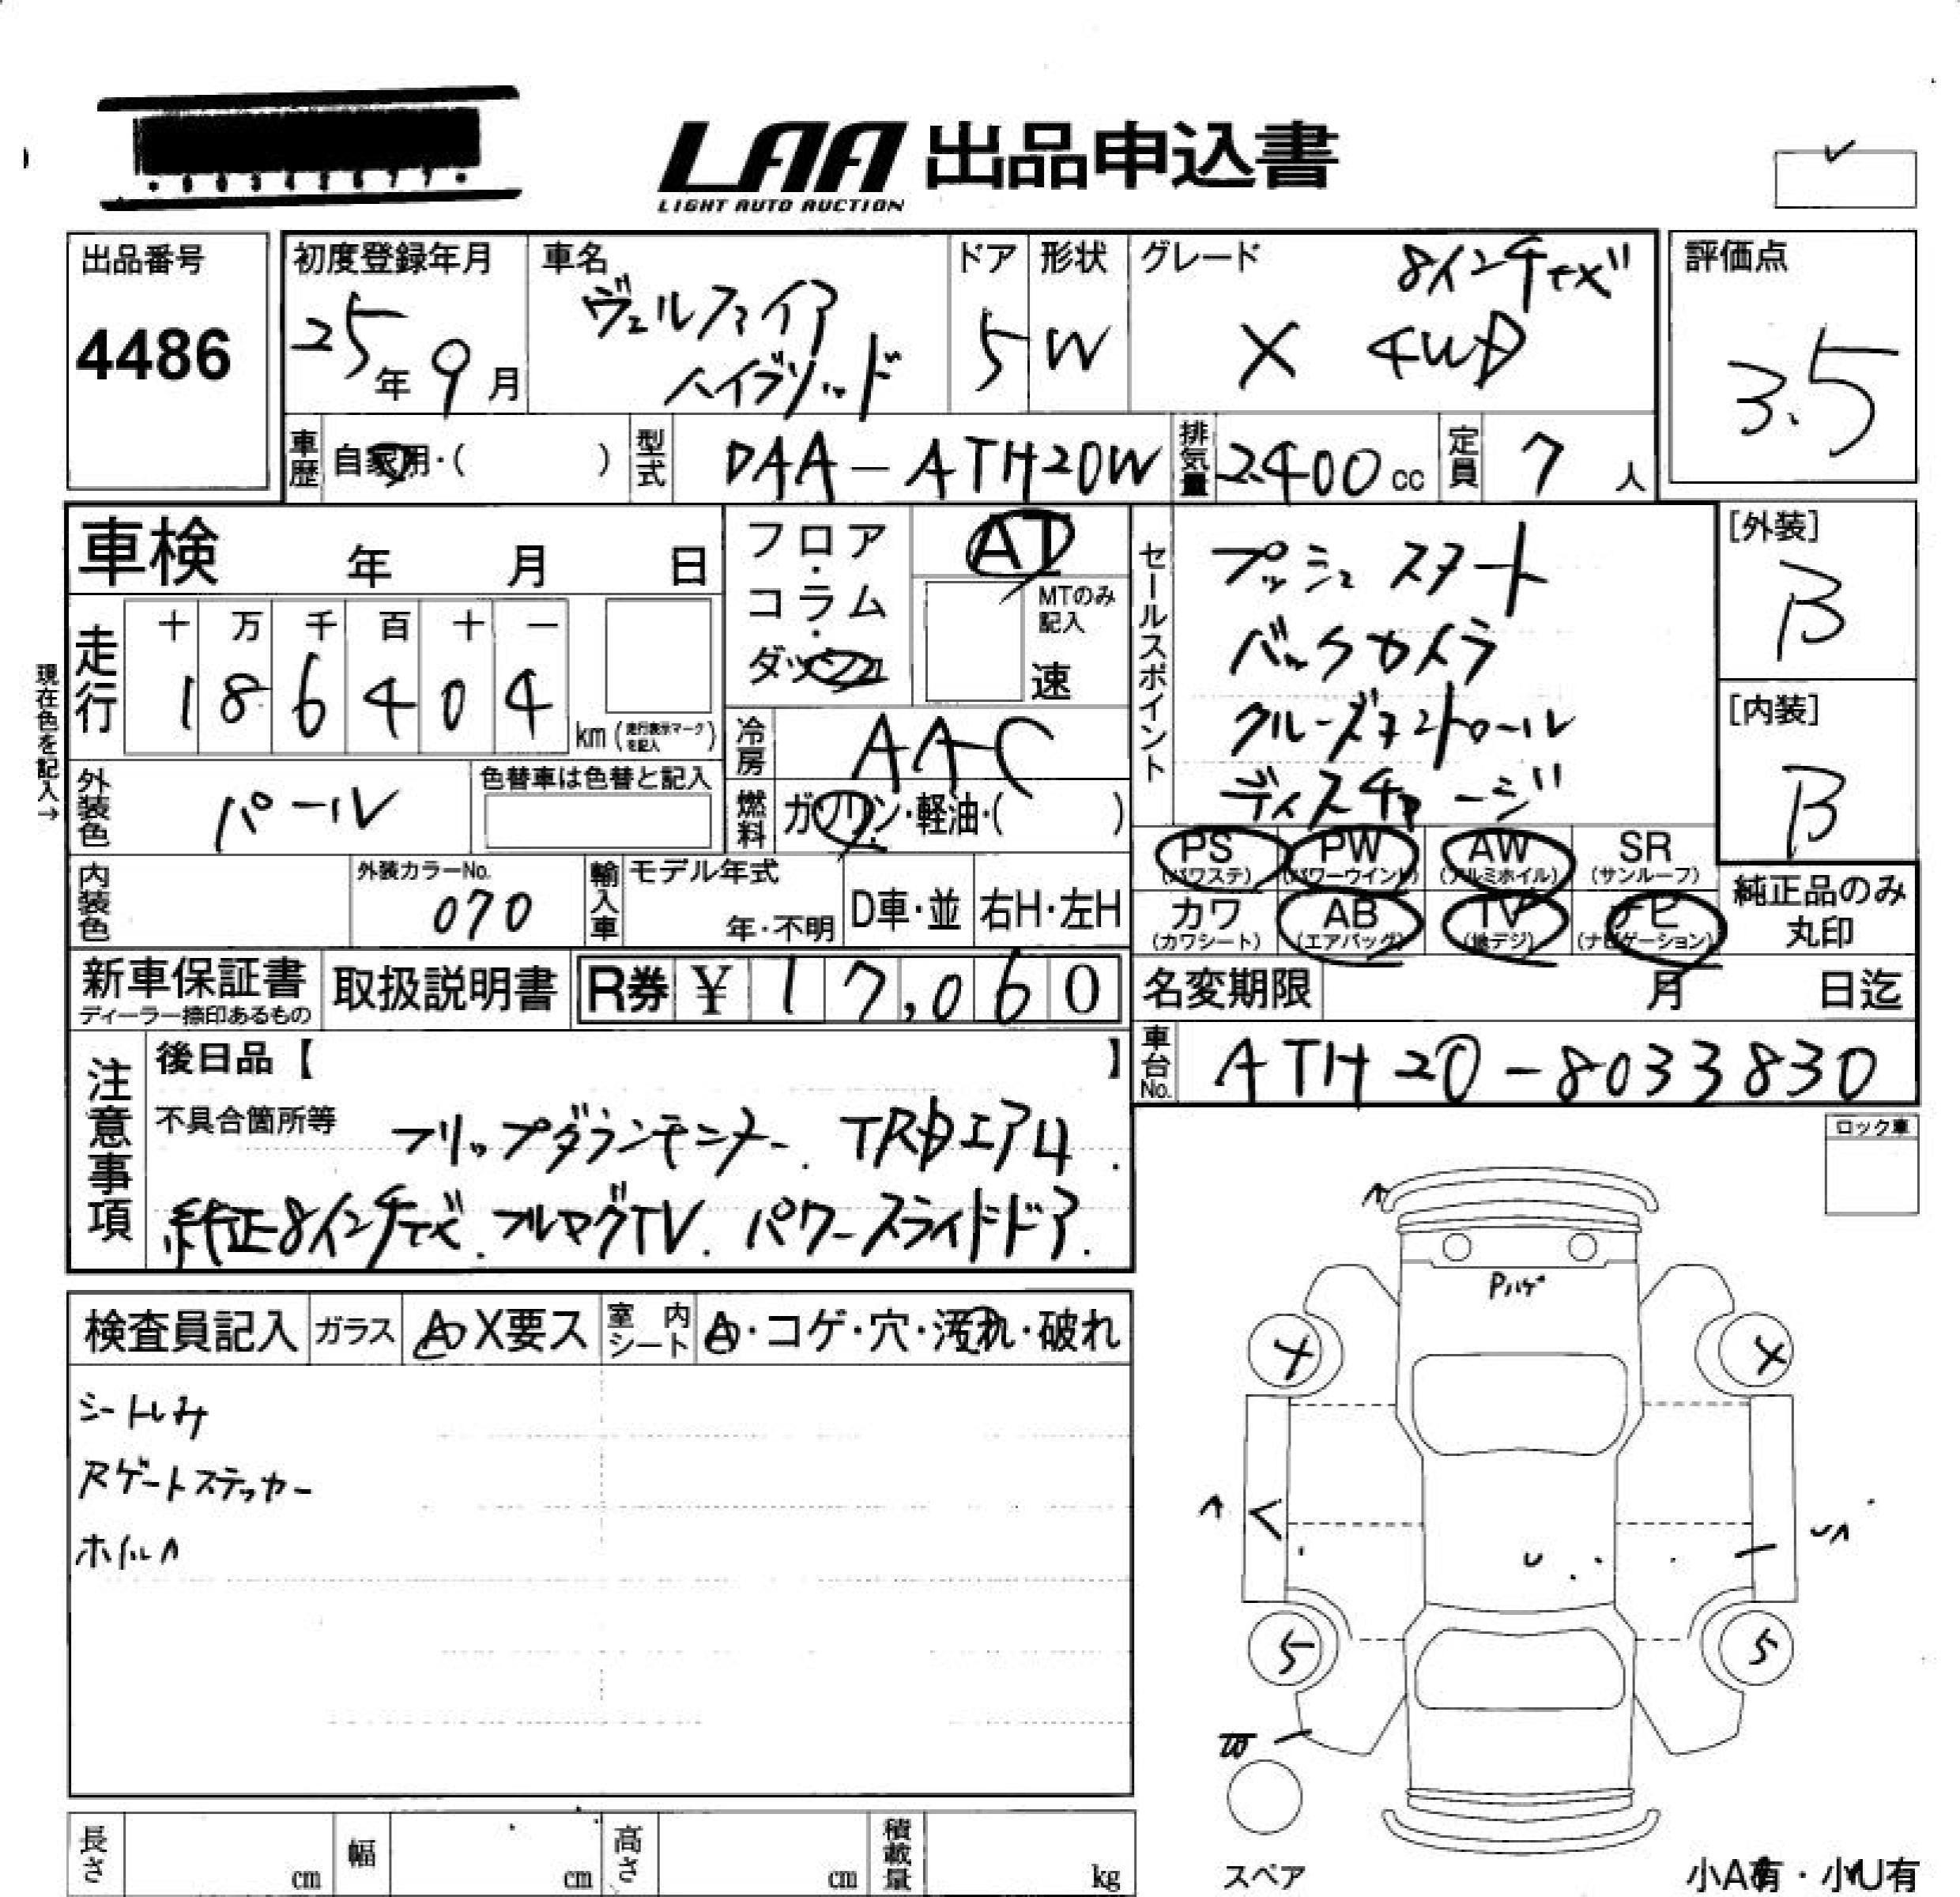 LAA 出品申込書
LIGHT AUTO AUCTION
出品番号
4486
初度登録年月
25年9月
車名
ヴェルファイア
ハイブリッド
ドア
5
形状
W
グレード
8インチナビ
X 4WD
評価点
3.5
車歴 自家用・( )
型式 DAA-ATH20W
排気量 2400cc
定員 7人
車検 年 月 日
フロア・コラム・ダッシュ
AT
MTのみ記入
速
現在色を記入→
走行
十 万 千 百 十 一
1 8 6 4 0 4
km(走行表示マークを記入)
冷房 AAC
外装色 パール
色替車は色替と記入
燃料 ガソリン・軽油・( )
内装色
外装カラーNo.
070
輸入車
モデル年式
年・不明
D車・並
右H・左H
セールスポイント
プッシュスタート
バックカメラ
クルーズコントロール
ディスチャージ
[外装]
B
[内装]
B
PS (パワステ)
PW (パワーウインド)
AW (アルミホイル)
SR (サンルーフ)
カワ (カワシート)
AB (エアバッグ)
TV (地デジ)
ナビ (ナビゲーション)
純正品のみ
丸印
新車保証書
ディーラー捺印あるもの
取扱説明書
R券 ¥ 17,060
名変期限 月 日迄
車台No. ATH20-8033830
注意事項
後日品【 】
不具合箇所等
フリップダウンモニター. TRDエアロ.
純正8インチナビ. フルセグTV. パワースライドドア.
ロック車
検査員記入
ガラス
A・X要ス
室内シート
A・コゲ・穴・汚れ・破れ
シートしみ
Rゲートステッカー
ホイルA
Pハゲ
A
X
X
A
<
U
UA
5
5
W
スペア
長さ cm
幅 cm
高さ cm
積載量 kg
小A有・小U有